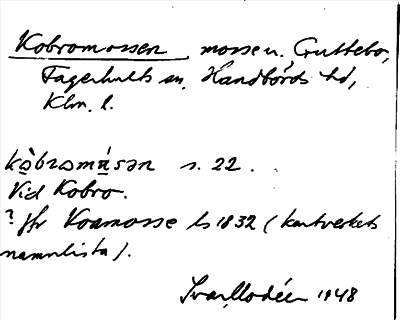 Kobromossen, mosse u. Guttebo,
Fagerhults sn, Handbörds hd,
Klm. l.
kòbromåsən s. 22.
Vid Kobro.
? Jfr Koamosse Ls 1832 (kartverkets
namnlista).
Ivar Modéer 1948